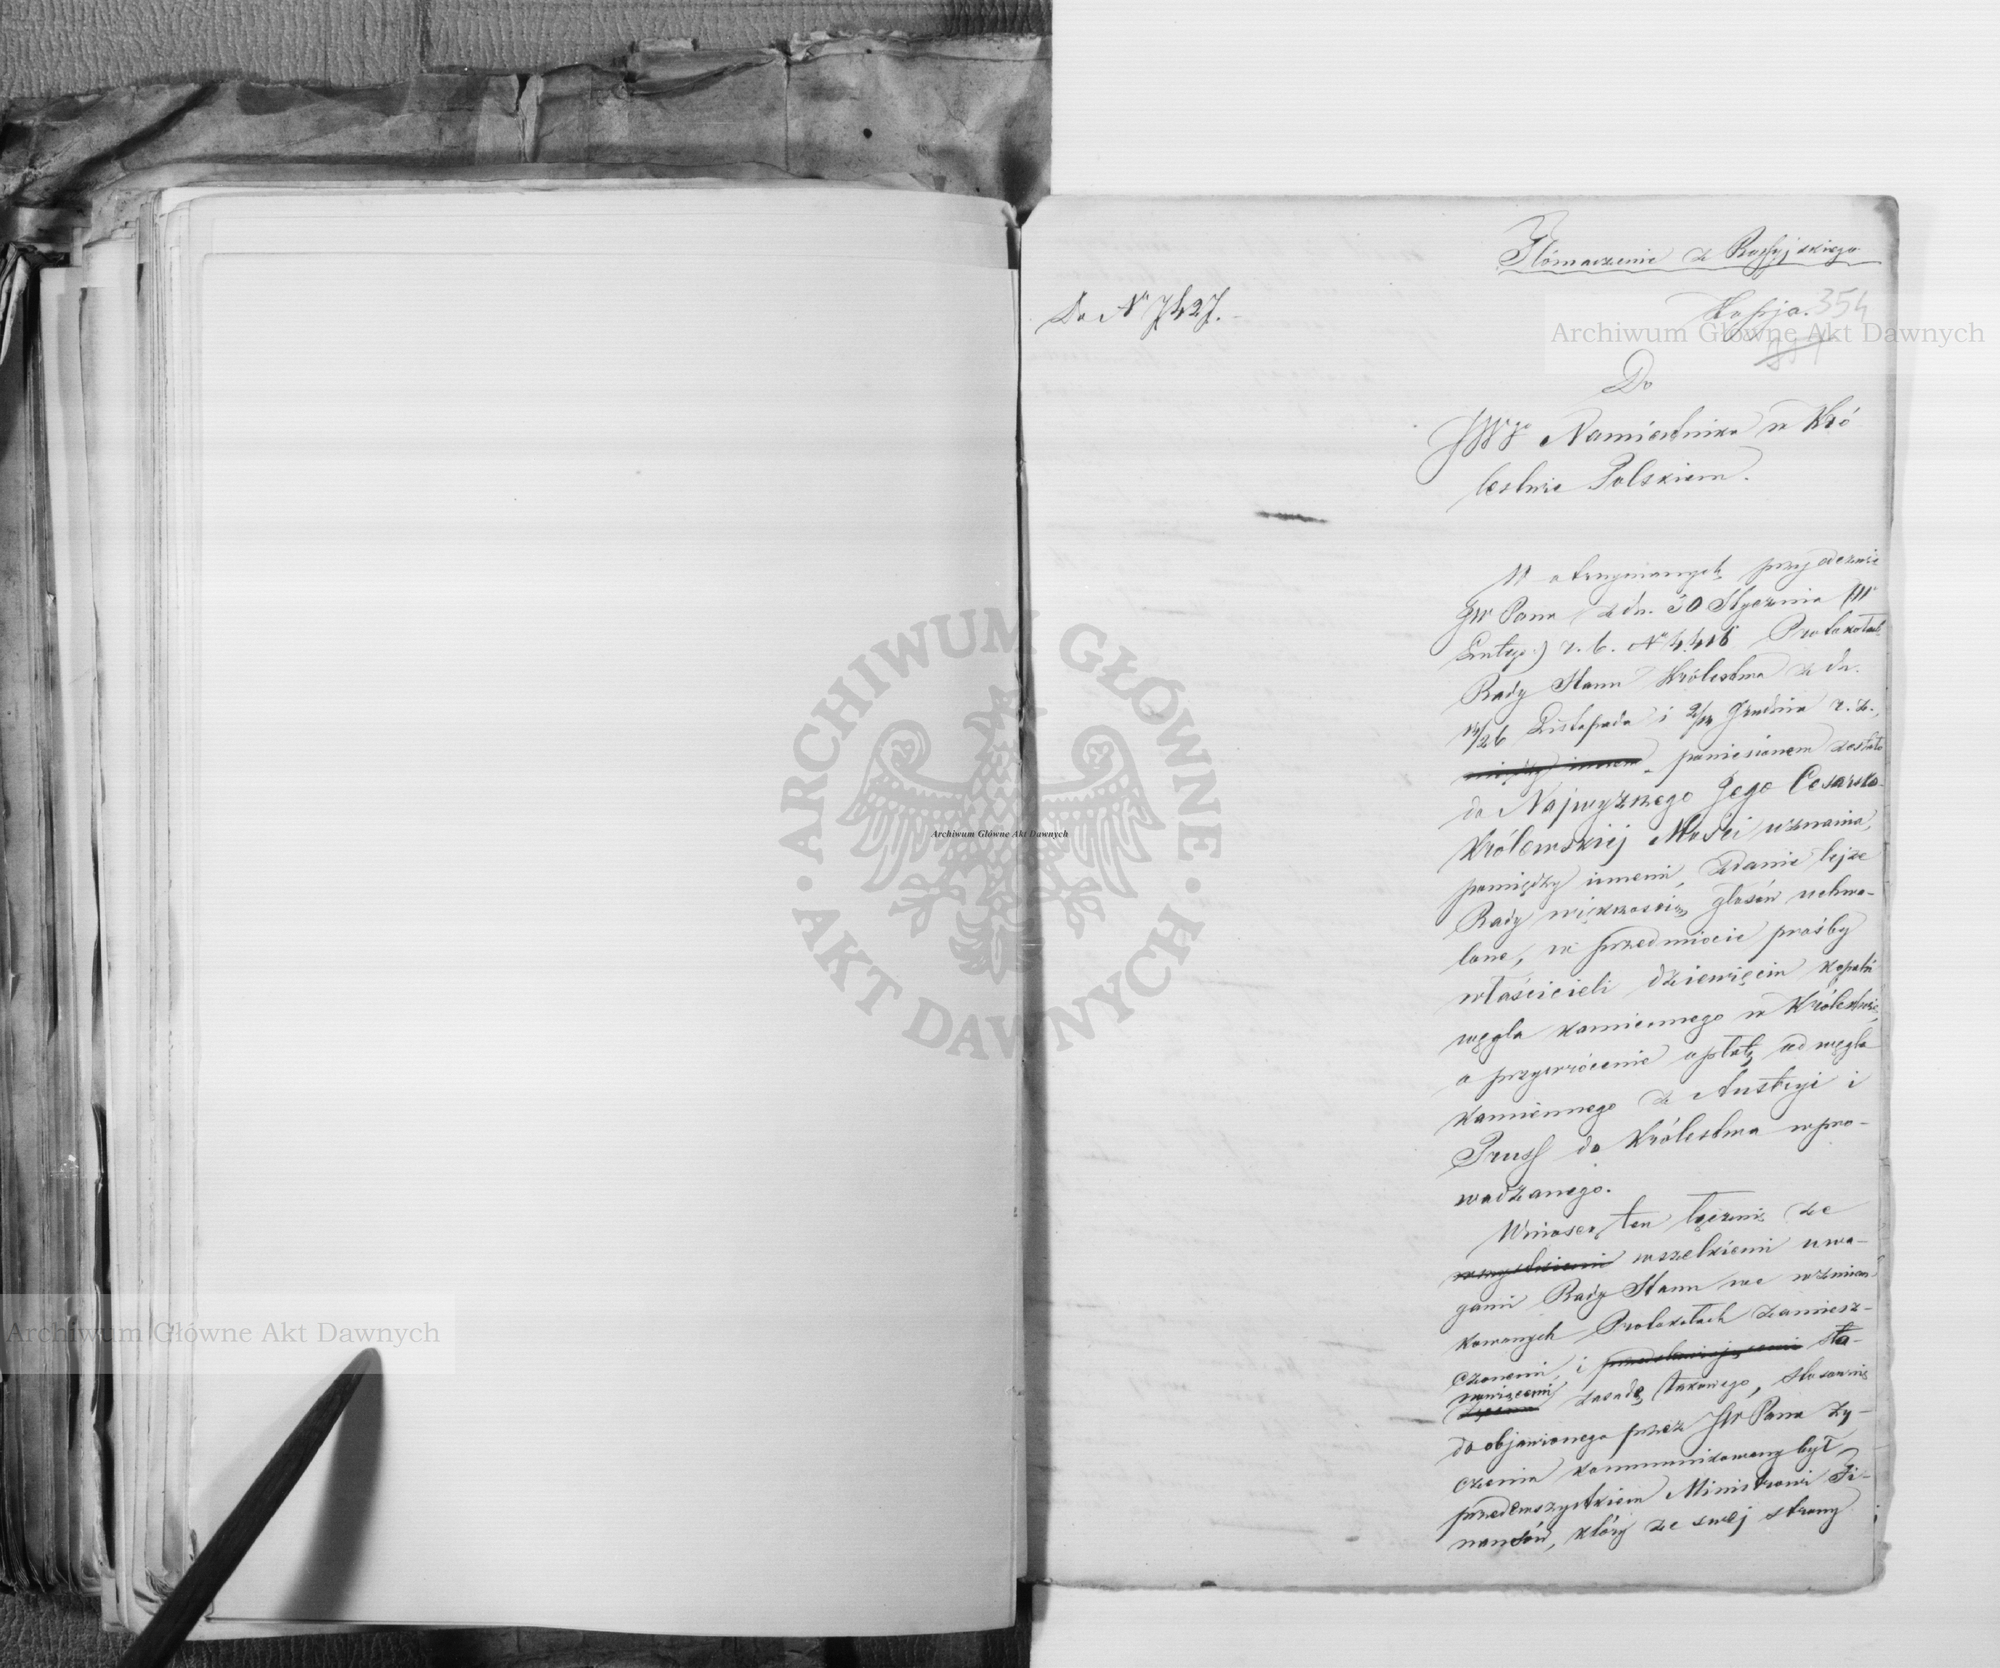 Tłómaczenie z Rossyjskiego
Do Nr 7427.
Kopja. 354
Do
JWgo Namiestnika w Kró
lestwie Polskiem.
W otrzymanych przy odezwie
JW Pana z dn. 30 Stycznia (11
Lutego) r. b. Nr 4.418 Protokołach
Rady Stanu Królestwa z dn.
14/26 Listopada i 2/14 Grudnia r. z.,
między innem poniesionem zostało
do Najwyższego Jego Cesarsko-
Królewskiej Mości uznania,
pomiędzy innemi, zdanie tejże
Rady większością głosów uchwa-
lone, w przedmiocie prośby
właścicieli dziewięciu kopalń
węgla kamiennego w Królestwie,
o przywrócenie opłaty od węgla
kamiennego z Austryi i
Pruss do Królestwa wpro-
wadzanego.
Wniosek ten łącznie ze
wszystkiemi wszelkiemi uwa-
gami Rady Stanu we wzmian-
kowanych Protokołach zamiesz-
czonemi, i przedstawiającemi sta-
nowiącemi
zasadę takowego, stosownie
do objawionego przez JW Pana ży-
czenia kommunikowany był
przedewszystkiem Ministrowi Fi-
nansów, który ze swej strony
Archiwum Główne Akt Dawnych
Archiwum Główne Akt Dawnych
Archiwum Główne Akt Dawnych
ARCHIWUM GŁÓWNE · AKT DAWNYCH ·